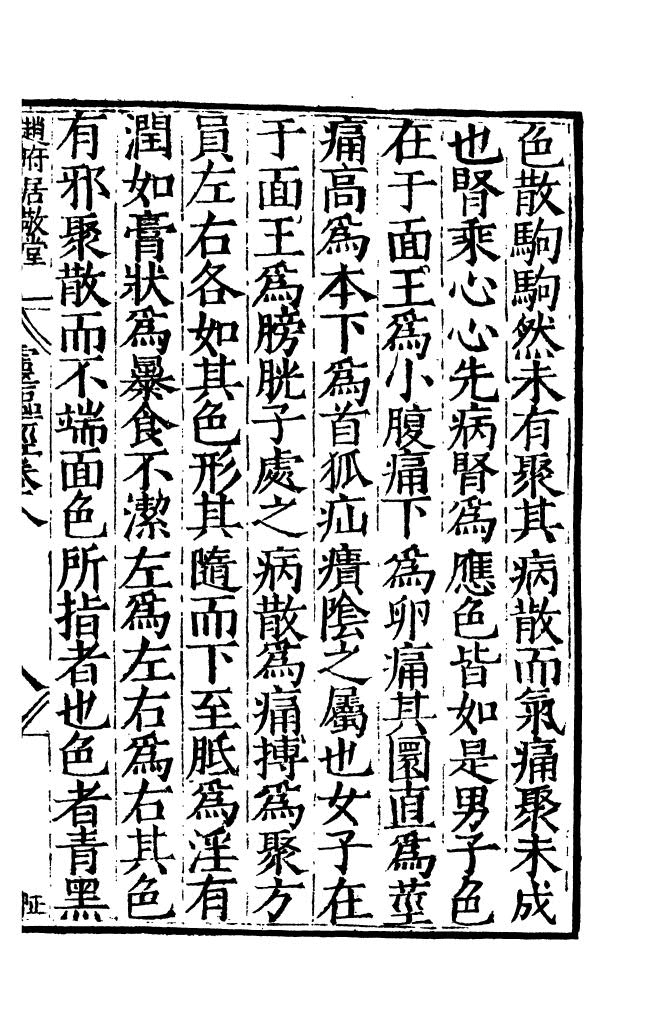 色散駒駒然未有聚其病散而氣痛聚未成
也腎乘心心先病腎為應色皆如是男子色
在于面王為小腹痛下為卵痛其圜直為莖
痛高為本下為首狐疝㿉陰之屬也女子在
于面王為膀胱子處之病散為痛搏為聚方
員左右各如其色形其隨而下至胝為淫有
潤如膏狀為暴食不潔左為左右為右其色
有邪聚散而不端面色所指者也色者青黑
趙府居敬堂 靈樞經卷八